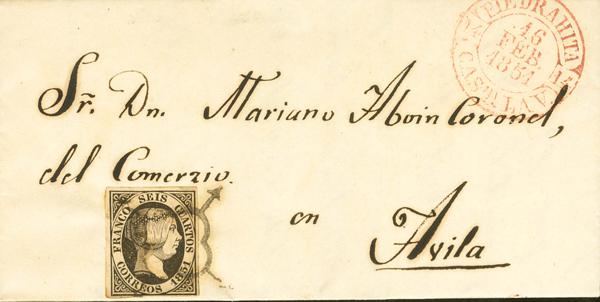 PIEDRAHITA
16
FEB
1851
CAST. LA V.
Sr. Dn. Mariano Aboin Coronel,
del Comerzio.
en
Avila
FRANCO SEIS CUARTOS
CORREOS 1851